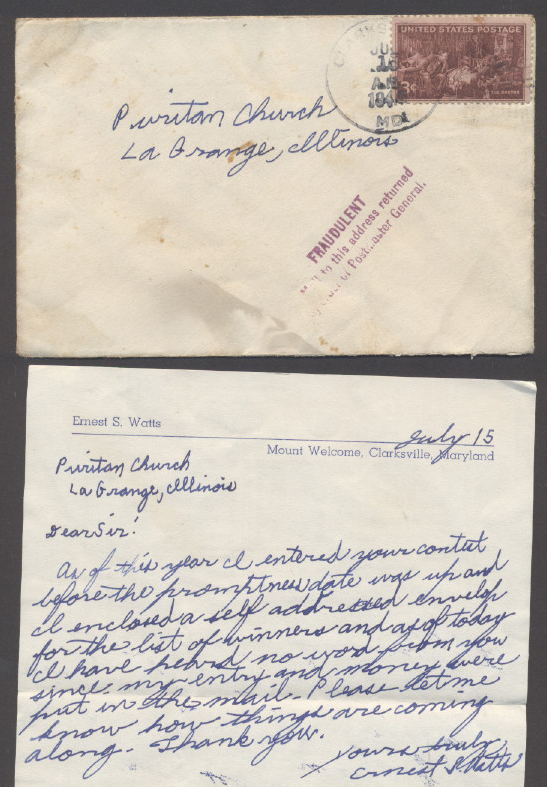 Puritan Church
La Grange, Illinois
JUL
16
A.M.
MD.
UNITED STATES POSTAGE
3¢
THE DOCTOR
FRAUDULENT
to this address returned
order of Postmaster General.
Ernest S. Watts
July 15
Mount Welcome, Clarksville, Maryland
Puritan Church
La Grange, Illinois
Dear Sir!
As of this year I entered your contest
before the promptness date was up and
I enclosed a self addressed envelop
for the list of winners and as of today
I have heard no word from you
since my entry and money were
put in the mail. Please let me
know how things are coming
along. Thank you.
Yours truly,
Ernest S. Watts